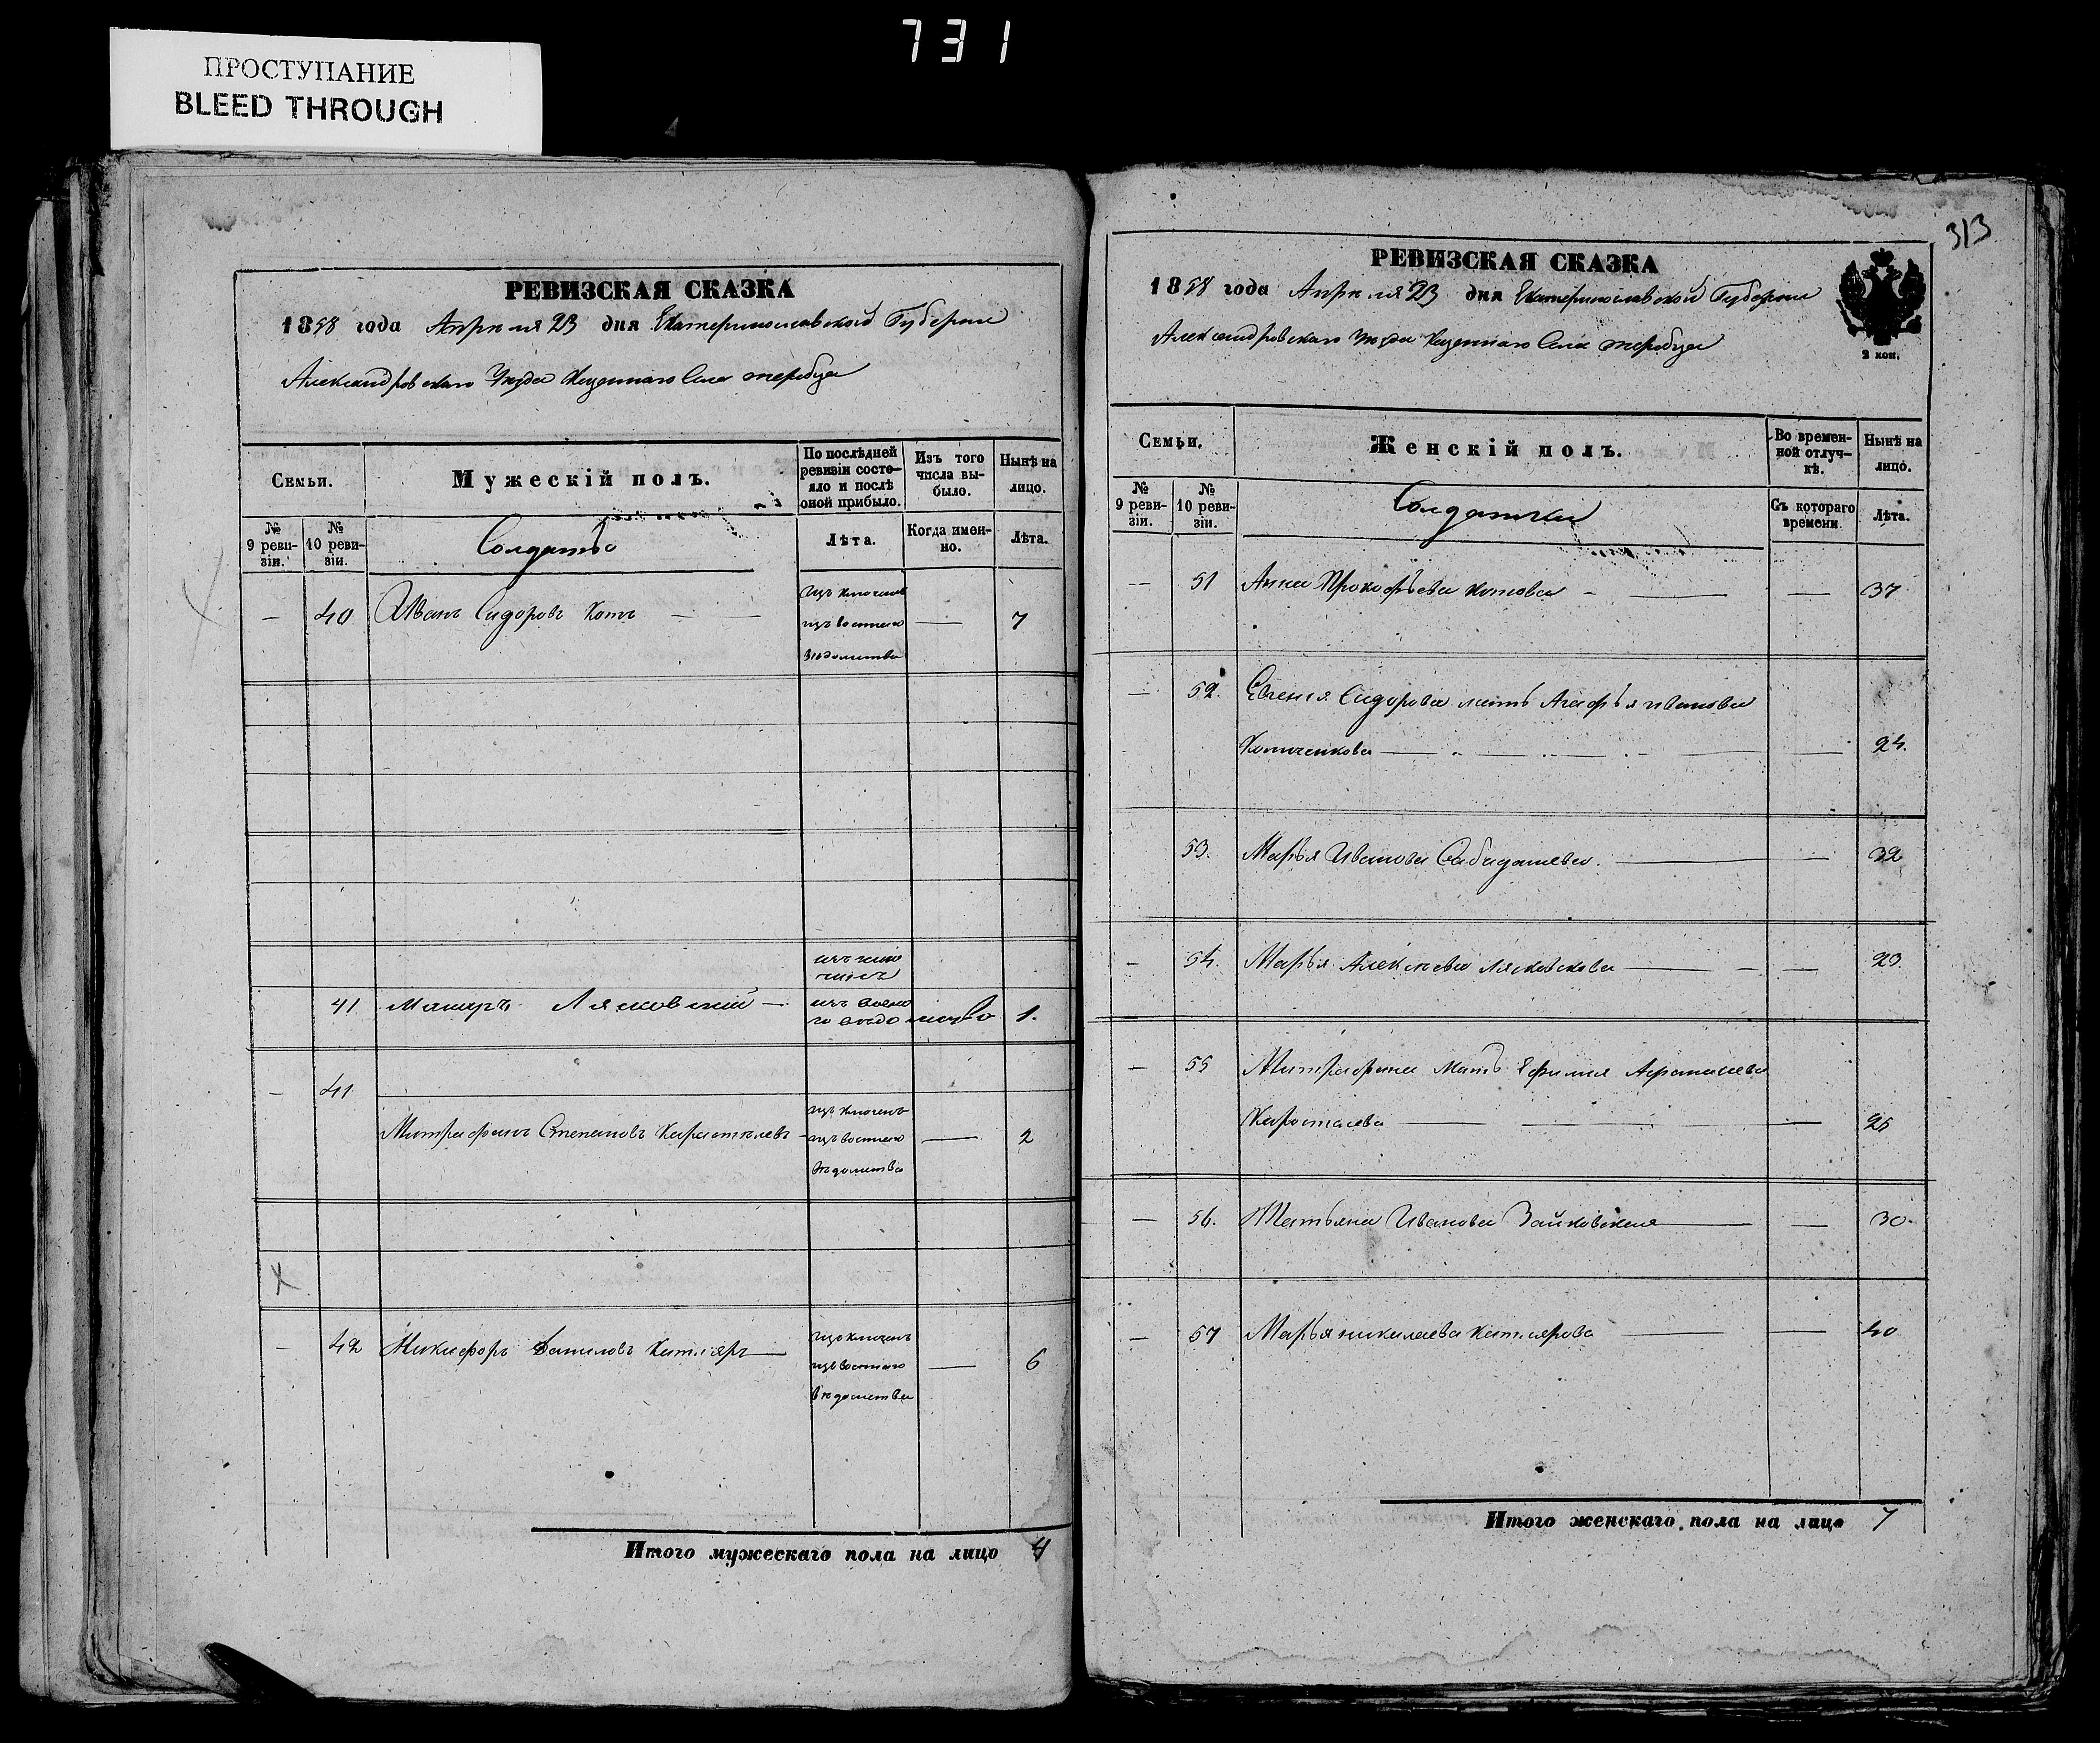 731
ПРОСТУПАНИЕ
BLEED THROUGH
РЕВИЗСКАЯ СКАЗКА
1858 года Апреля 23 дня Екатеринославской Губернии
Александровскаго Уезда Казеннаго Села Жеребца
Семьи.
Мужескій полъ.
По послѣдней ревизіи состояло и послѣ оной прибыло.
Изъ того числа выбыло.
Нынѣ на лицо.
№ 9 ревизіи.
№ 10 ревизіи.
Солдаты
Лѣта.
Когда именно.
Лѣта.
— 40 Иванъ Сидоровъ Котъ — изключенъ
изъ военнаго — 7
ведомства
41 Макаръ Лясковский —
1.
— 41
Митрофанъ Степановъ Карасталевъ — изъ военнаго — 2
ведомства
— 42 Никифоръ Даниловъ Котляръ — изъ военнаго — 6
ведомства
Итого мужескаго пола на лицо 4
313
РЕВИЗСКАЯ СКАЗКА
1858 года Апреля 23 дня Екатеринославской Губернии
Александровскаго Уезда Казеннаго Села Жеребца
2 коп.
Семьи.
Женскій полъ.
Во временной отлучкѣ.
Нынѣ на лицо.
№ 9 ревизіи.
№ 10 ревизіи.
Солдатки
Съ котораго времени.
Лѣта.
— 51 Анна Прокофьева Котова — — 37
— 52. Сидорова мать Агафья Иванова
— — 24.
53. Марья Иванова — — 32
— 54. Марья Алексеева Лясковскова — — 23.
— 55 Митрофана мать Ефимия Афанасиева
— — 25
— 56. Татьяна Иванова Зайковская — — 30.
— 57 Марья Николаева Котлярова — — 40
Итого женскаго пола на лицо 7